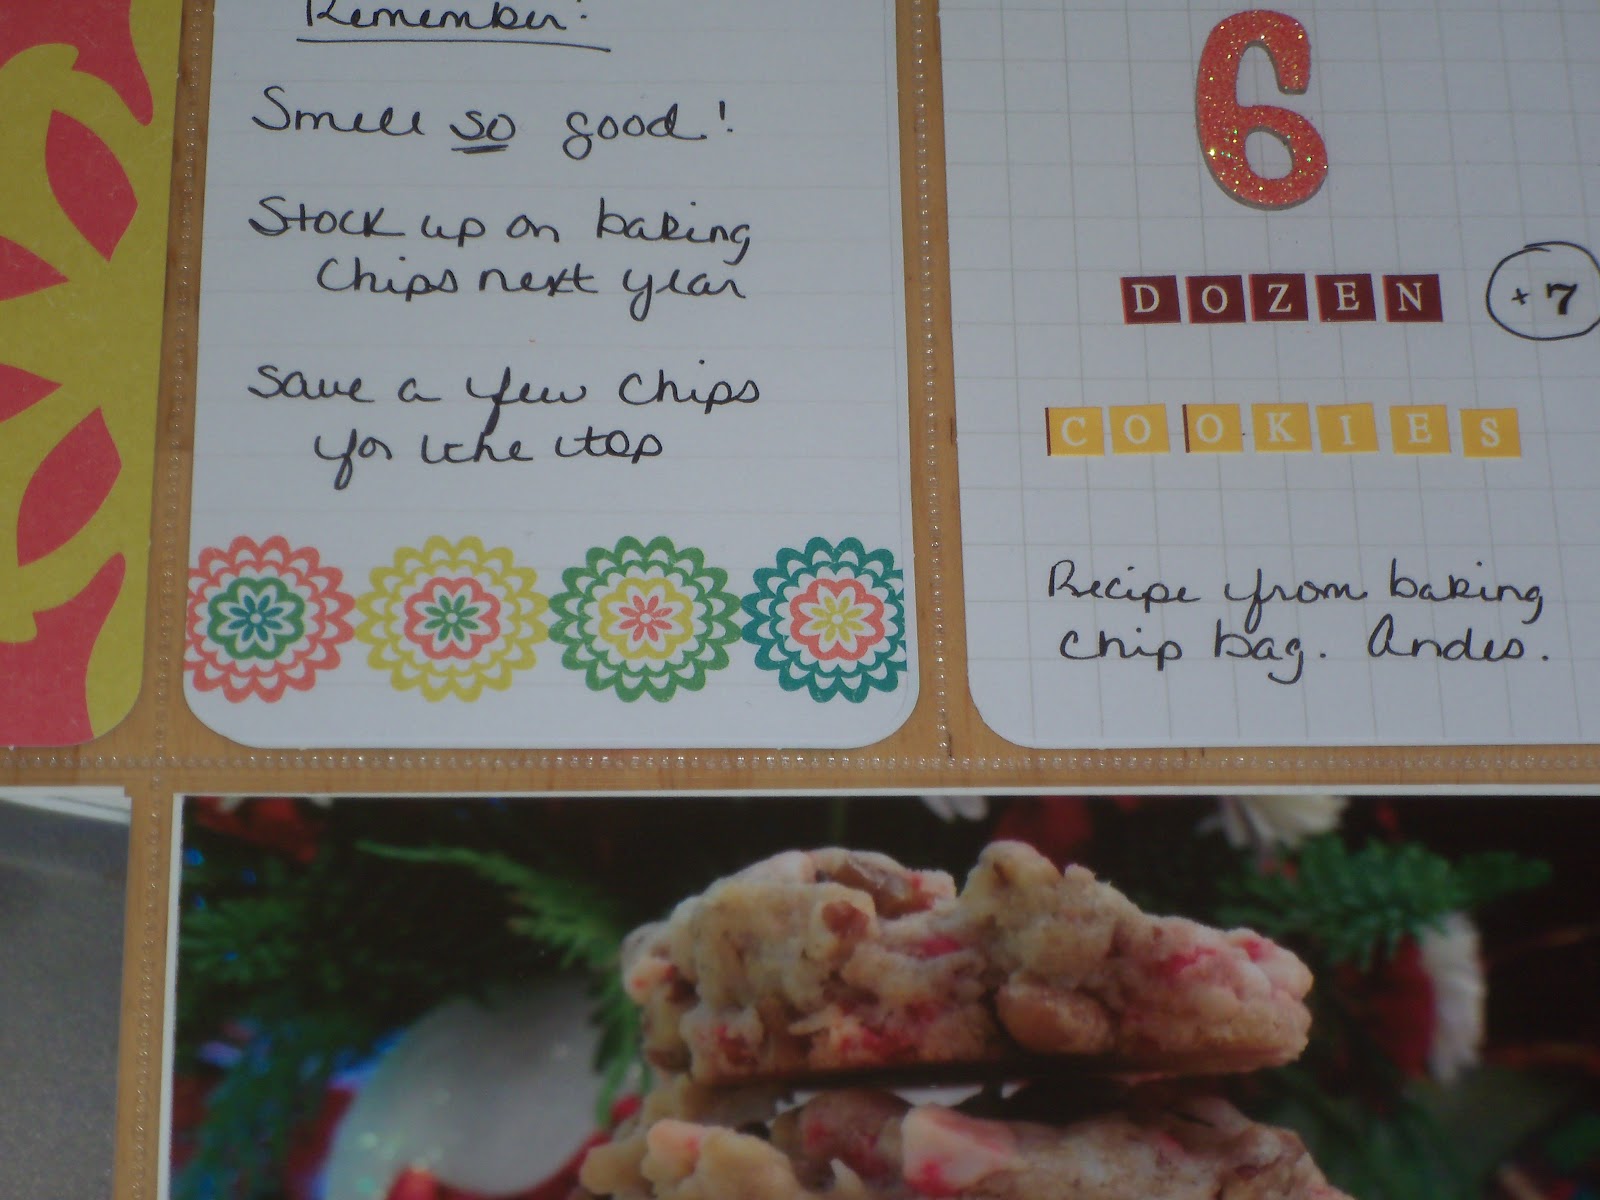 Remember:
Smell so good!
Stock up on baking
chips next year
Save a few chips
for the top
6
DOZEN +7
COOKIES
Recipe from baking
chip bag. Andes.